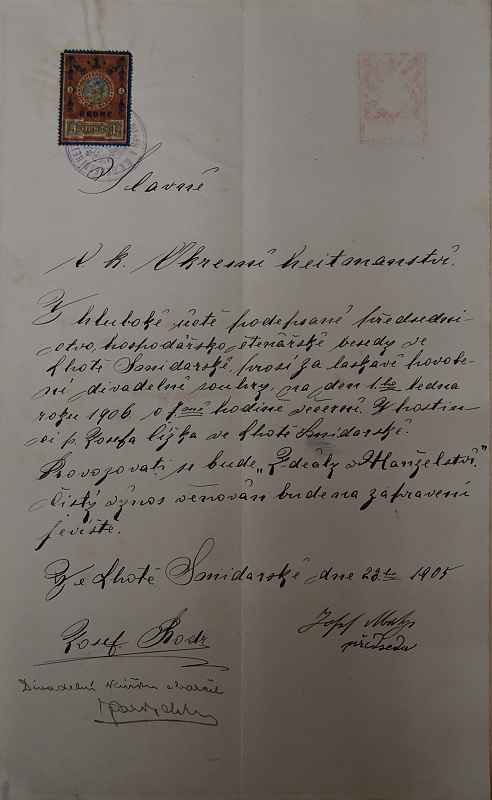 1
1 1
KRONE
1 1KRC 1
Slavné
c. k. Okresní heitmanství.
V hluboké úctě podepsané předsedni-
ctvo, hospodářsko čtenářské besedy ve
Lhotě Smidarské, prosí za laskavé povole-
ní divadelní souhry, na den 1.ho ledna
roku 1906 o 7.mé hodině večerní. V hostin-
ci p. Josefa Čížka ve Lhotě Smidarské.
Provozovati se bude „Ideály v Manželství."
Čistý výnos věnován bude na zapravení
jeviště.
Ve Lhotě Smidarské dne 23.ho 1905
Josef
Josef
předseda
Divadelní